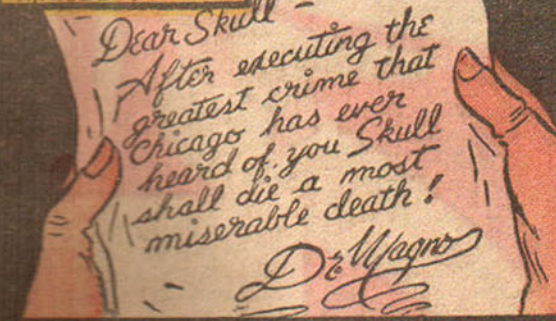 Dear Skull -
After executing the
greatest crime that
Chicago has ever
heard of, you Skull
shall die a most
miserable death!
Dr. Magno